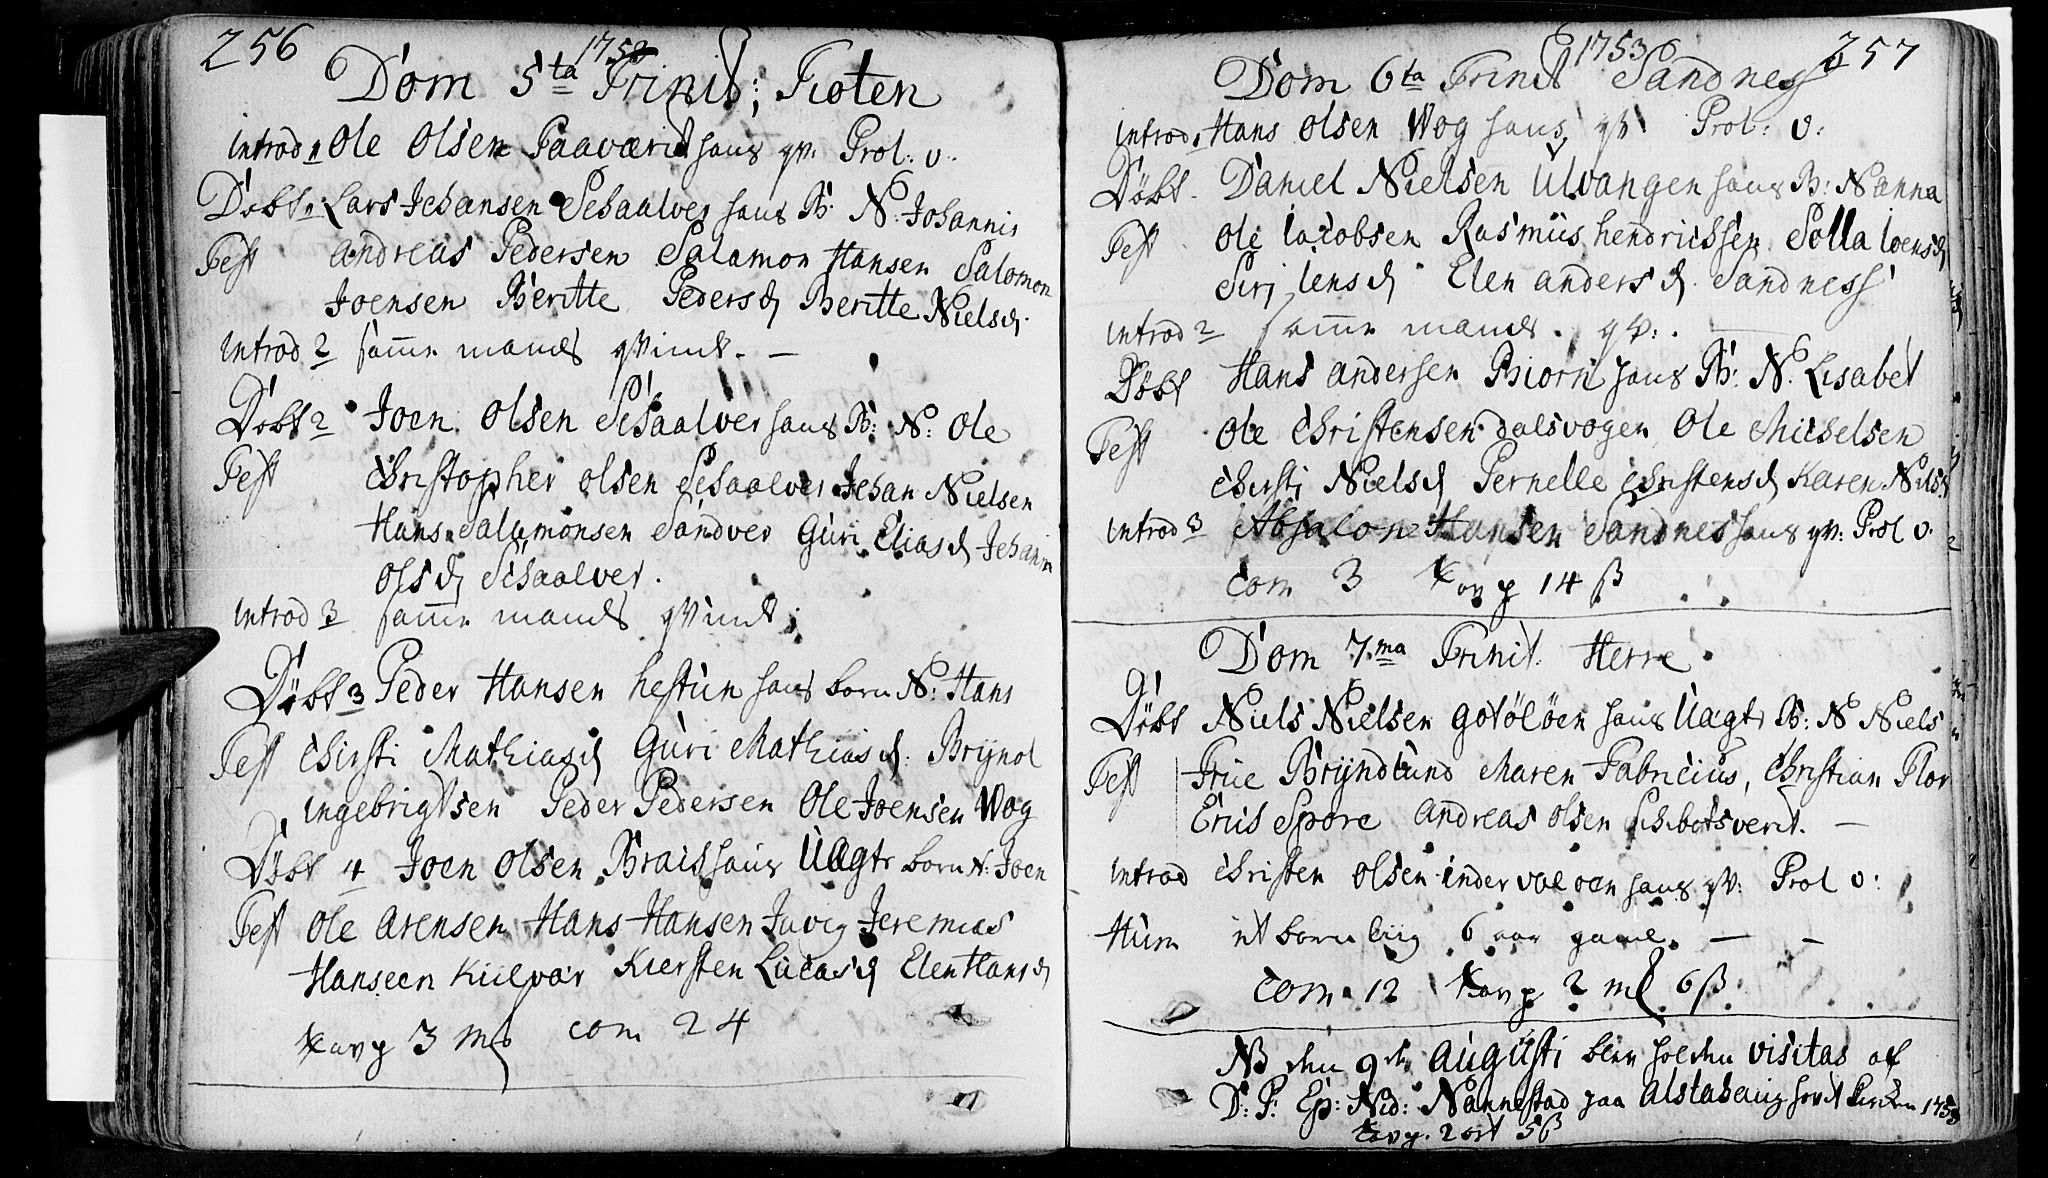 256
1753
Dom 5ta Trinit; Tioten
introd 1 Ole Olsen Paaværid hans qv: Prol: v:
Døbt 1 Lars Jehansen Schaalver hans B: N: Johannis
Test Andreas Pedersen Salamon Hansen Salomon
Joensen Beritte Pedersd Beritte Nielsd.
introd 2 samme mands qvinde. —
Døbt 2 Joen Olsen Schaalver hans B: N: Ole
Test Christopher Olsen Schaalver Jehan Nielsen
Hans Salamonsen Sandver Guri Eliasd Jehanna
Olsd Schaalver.
introd 3 samme mands qvinde;
Døbt 3 Peder Hansen hestun hans born N: Hans
Test Chirsti Mathiasd Guri Mathiasd: Brynol
ingebrigtsen Peder Pedersen Ole Joensen Wog
Døbt 4 Joen Olsen Brais hans Uægt born N: Joen
Test Ole Arensen Hans Hansen Juvig Jeremias
Hanseen Kiilvær Kiersten Lucasd Elen Hansd
Tavg 3 m com 24
257
1753
Dom 6ta Trinit Sandness
introd 1 Hans Olsen Wog hans qv Prol: v:
Døbt Daniel Nielsen Ulvangen hans B: Nanna
Test Ole Iacobsen Rasmus hendrichsen Solla Ioensd
Siri Iensd Elen andersd Sandness
introd 2 samme mands. qv:.
Døbt Hans andersen Biorn hans B: N: Lisabet
Test Ole Christensen dalsvogen Ole Michelsen
Chirsti Nielsd Pernelle Christensd Karen Nielsd
introd 3 Absalon Hansen Sandnes hans qv: Prol v:
com 3 Tavg 14 ß
Dom 7ma Trinit. Herre
Døbt Niels Nielsen Gotöløen hans Uægt B: N Niels
Test Frue Bryndlund Maren Fabricius, Christian Flor
Erics Spore Andreas Olsen Schotsverd. —
introd Christen Olsen indervaloen hans qv: Prol v:
Hum it barn liig 6 aar gamel. — —
com. 12 Tavg 2 m 6 ß
NB den 9de Augusti blev holden visitas af
D: P: Ep: Nid: Nannestad paa Alstahaug 1753
Tavg. 2 ort 5 ß